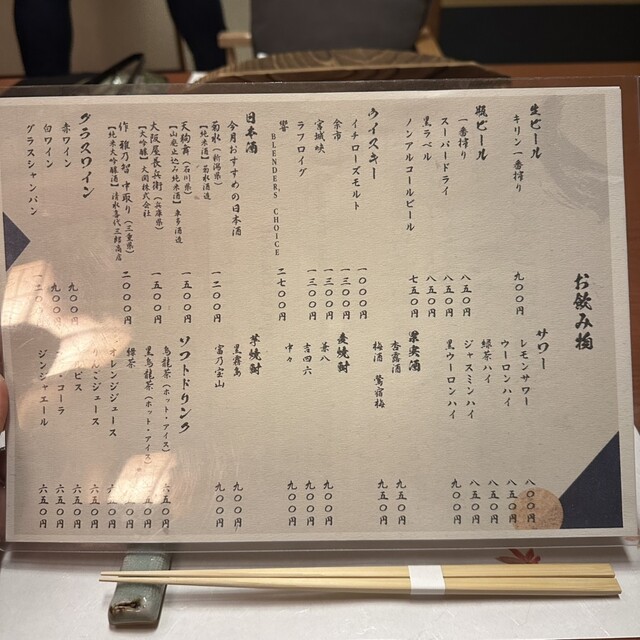 お飲み物
生ビール
キリン一番搾り 九〇〇円
瓶ビール
一番搾り 八五〇円
スーパードライ 八五〇円
黒ラベル 八五〇円
ノンアルコールビール 七五〇円
ウイスキー
イチローズモルト 一〇〇〇円
余市 一三〇〇円
宮城峡 一三〇〇円
ラフロイグ 一三〇〇円
響 BLENDERS CHOICE 二七〇〇円
日本酒
今月おすすめの日本酒
菊水(新潟県) 一二〇〇円
【純米酒】菊水酒造
天狗舞(石川県) 一五〇〇円
【山廃仕込み純米酒】車多酒造
大阪屋長兵衛(兵庫県) 一五〇〇円
【大吟醸】大関株式会社
作 雅乃智 中取り(三重県) 二〇〇〇円
【純米大吟醸酒】清水清三郎商店
グラスワイン
赤ワイン 九〇〇円
白ワイン 九〇〇円
グラスシャンパン
サワー
レモンサワー 八〇〇円
ウーロンハイ 八五〇円
緑茶ハイ 八五〇円
ジャスミンハイ 八五〇円
黒ウーロンハイ 九〇〇円
果実酒
杏露酒 九五〇円
梅酒 鶯宿梅 九五〇円
麦焼酎
兼八 九〇〇円
吉四六 九〇〇円
中々 九〇〇円
芋焼酎
黒霧島 九〇〇円
富乃宝山 九〇〇円
ソフトドリンク
烏龍茶(ホット・アイス) 六五〇円
黒烏龍茶(ホット・アイス) 五〇円
緑茶
オレンジジュース 六五〇円
りんごジュース 六五〇円
ピス 六五〇円
コーラ 六五〇円
ジンジャエール 六五〇円